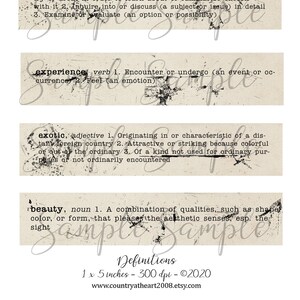 with it 2. Inquire into or discuss (a subject or issue) in detail
3. Examine or evaluate (an option or possibility)
Sample Sample
experience, verb 1. Encounter or undergo (an event or oc-
currence) 2. Feel (an emotion)
Sample Sample
exotic, adjective 1. Originating in or characteristic of a dis-
tant foreign country 2. Attractive or striking because colorful
or out of the ordinary 3. Of a kind not used for ordinary pur-
poses or not ordinarily encountered
Sample Sample
beauty, noun 1. A combination of qualities, such as shape
color, or form, that please the aesthetic senses, esp. the
sight
Sample Sample
Definitions
1 x 5 inches - 300 dpi - ©2020
www.countryatheart2008.etsy.com